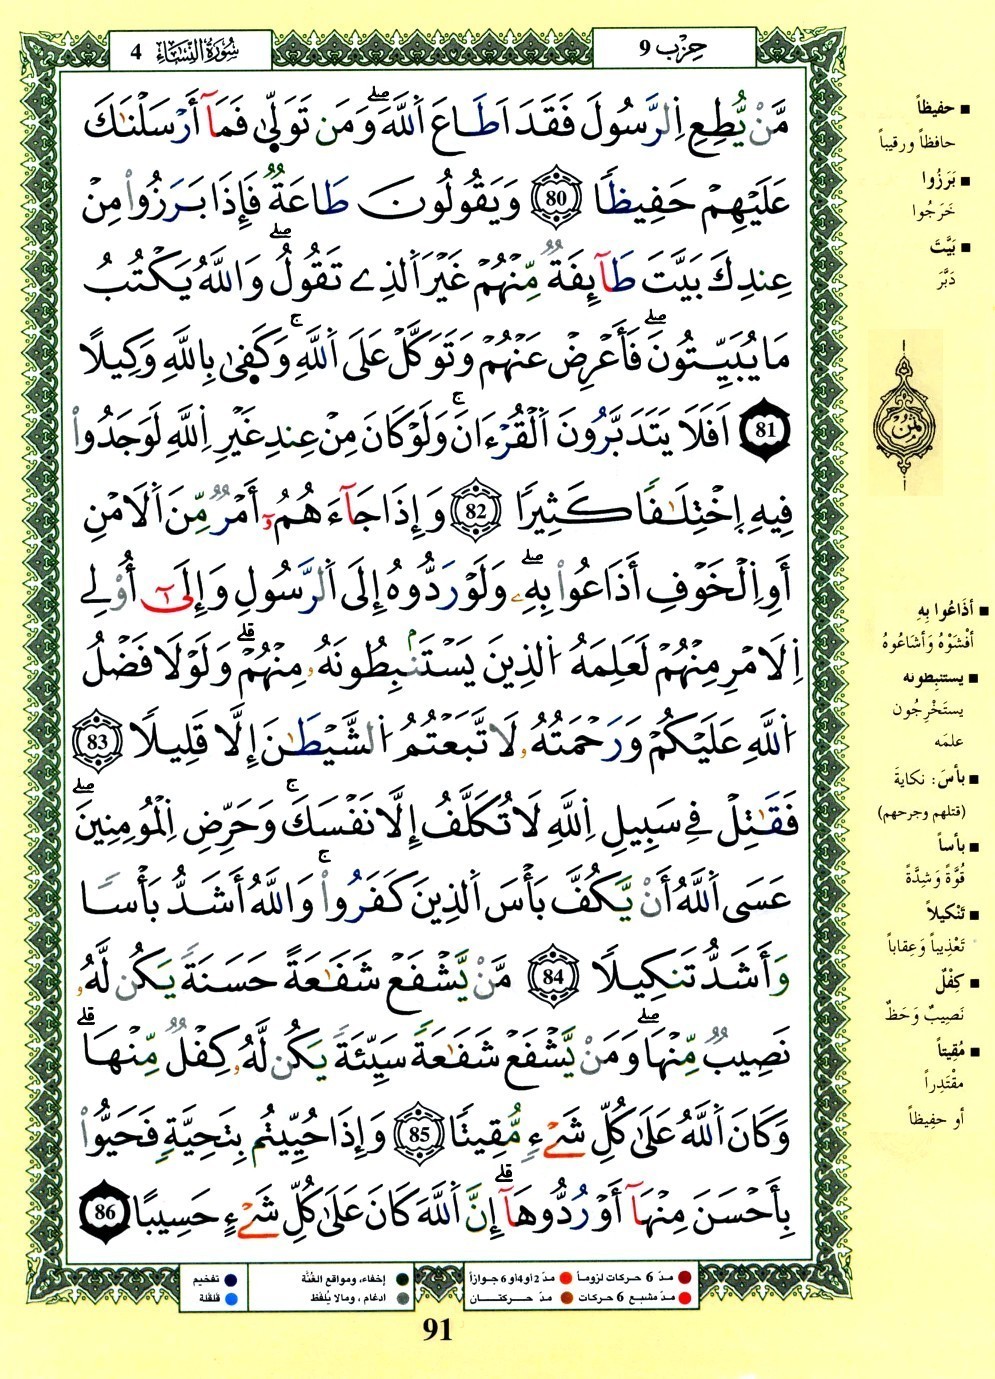 سُورَةُ النِّسَاءِ 4
حِزْب 9
مَّنْ يُّطِعِ اِ۬لرَّسُولَ فَقَدَ اَطَاعَ اَ۬للَّهَۖ وَمَن تَوَلّ۪يٰ فَمَآ أَرْسَلْنَٰكَ
عَلَيْهِمْ حَفِيظًا 80 وَيَقُولُونَ طَاعَةٞ فَإِذَا بَرَزُواْ مِنْ
عِندِكَ بَيَّتَ طَآئِفَةٞ مِّنْهُمْ غَيْرَ اَ۬لذِے تَقُولُۖ وَاللَّهُ يَكْتُبُ
مَا يُبَيِّتُونَۖ فَأَعْرِضْ عَنْهُمْ وَتَوَكَّلْ عَلَى اَ۬للَّهِۚ وَكَف۪يٰ بِاللَّهِ وَكِيلًا
81 اَفَلَا يَتَدَبَّرُونَ اَ۬لْقُرْءَانَۚ وَلَوْ كَانَ مِنْ عِندِ غَيْرِ اِ۬للَّهِ لَوَجَدُواْ
فِيهِ اِ۪خْتِلَٰفًا كَثِيرًا 82 وَإِذَا جَآءَهُمُۥٓ أَمْرٞ مِّنَ اَ۬لَامْنِ
أَوِ اِ۬لْخَوْفِ أَذَاعُواْ بِهِۦۖ وَلَوْ رَدُّوهُ إِلَى اَ۬لرَّسُولِ وَإِلَىٰٓ أُوْلِے
اِ۬لَامْرِ مِنْهُمْ لَعَلِمَهُ اُ۬لذِينَ يَسْتَنۢبِطُونَهُۥ مِنْهُمْۖ وَلَوْلَا فَضْلُ
اُ۬للَّهِ عَلَيْكُمْ وَرَحْمَتُهُۥ لَاتَّبَعْتُمُ اُ۬لشَّيْطَٰنَ إِلَّا قَلِيلًا 83
فَقَٰتِلْ فِے سَبِيلِ اِ۬للَّهِ لَا تُكَلَّفُ إِلَّا نَفْسَكَۚ وَحَرِّضِ اِ۬لْمُومِنِينَۖ
عَسَى اَ۬للَّهُ أَنْ يَّكُفَّ بَأْسَ اَ۬لذِينَ كَفَرُواْۚ وَاللَّهُ أَشَدُّ بَأْسًا
وَأَشَدُّ تَنكِيلًا 84 مَّنْ يَّشْفَعْ شَفَٰعَةً حَسَنَةً يَكُن لَّهُۥ
نَصِيبٞ مِّنْهَاۖ وَمَنْ يَّشْفَعْ شَفَٰعَةً سَيِّئَةً يَكُن لَّهُۥ كِفْلٞ مِّنْهَاۖ
وَكَانَ اَ۬للَّهُ عَلَىٰ كُلِّ شَےْءٍ مُّقِيتًا 85 وَإِذَا حُيِّيتُم بِتَحِيَّةٍ فَحَيُّواْ
بِأَحْسَنَ مِنْهَآ أَوْ رُدُّوهَآۖ إِنَّ اَ۬للَّهَ كَانَ عَلَىٰ كُلِّ شَےْءٍ حَسِيبًا 86
حفيظاً
حافظاً ورقيباً
بَرَزُوا
خَرَجُوا
بَيَّتَ
دَبَّرَ
ثمن
أذَاعُوا بِهِ
أفْشَوْهُ وَأشَاعُوهُ
يستنبِطونه
يستَخْرِجُون
علمَه
بأسَ: نكايةَ
(قتلهم وجرحهم)
بأساً
قُوَّةً وَشِدَّةً
تَنْكيلاً
تَعْذِيباً وَعِقاباً
كِفْلٌ
نَصِيبٌ وَحَظٌ
مُقِيتاً
مقْتَدِراً
أو حفِيظاً
مدّ 6 حركات لزوماً
مدّ 2 أو 4 أو 6 جوازاً
إخفاء، ومواقع الغُنَّة
تفخيم
مدّ مشبع 6 حركات
مدّ حركتـــان
ادغام ، ومالا يُلفَظ
قلقلة
91